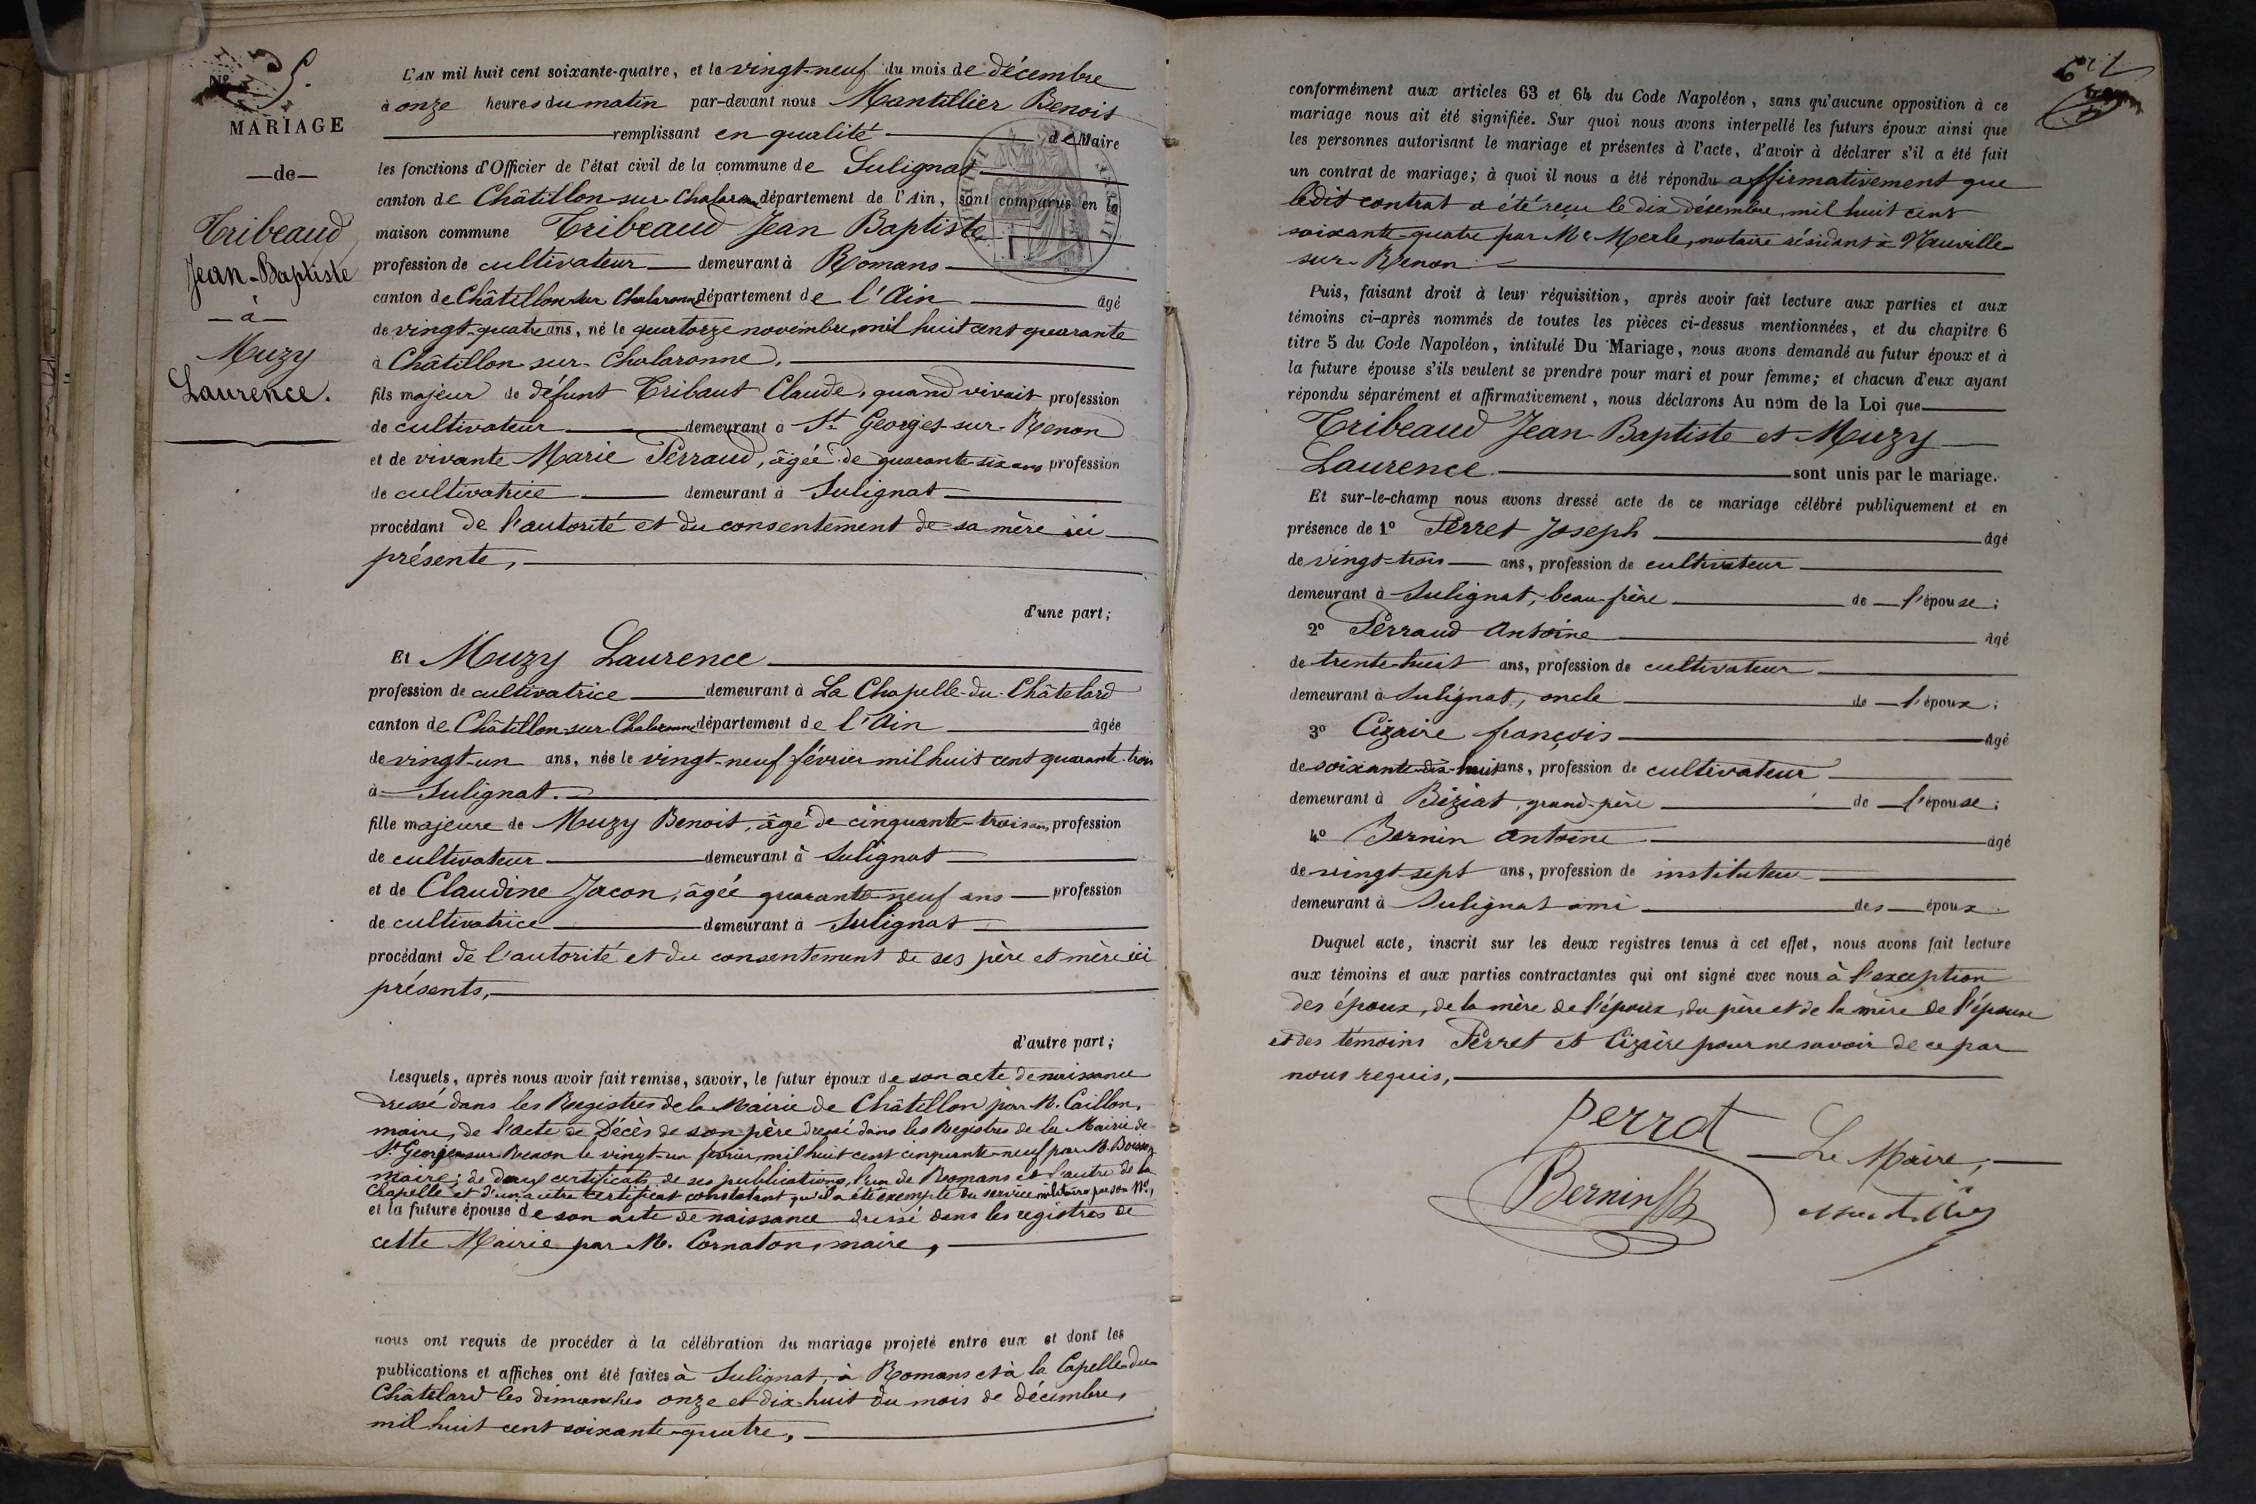 Nº 5.
MARIAGE
—de—
Tribeaud
Jean-Baptiste
—à—
Muzy
Laurence.
L'AN mil huit cent soixante-quatre, et le vingt-neuf du mois de décembre
à onze heures du matin par-devant nous Mantillier Benois
remplissant en qualité de Maire
les fonctions d'Officier de l'état civil de la commune de Sulignat
canton de Châtillon-sur-Chalaronne département de l'Ain, sont comparus en la
maison commune Tribeaud Jean Baptiste
profession de cultivateur demeurant à Romans
canton de Châtillon-sur-Chalaronne département de l'Ain âgé
de vingt-quatre ans, né le quatorze novembre, mil huit cent quarante
à Châtillon-sur-Chalaronne,
fils majeur de défunt Tribaut Claude, quand vivait profession
de cultivateur demeurant à St Georges-sur-Renon
et de vivante Marie Perraud, âgée de quarante-six ans profession
de cultivatrice demeurant à Sulignat
procédant de l'autorité et du consentement de sa mère ici
présente,
d'une part;
Et Muzy Laurence
profession de cultivatrice demeurant à La Chapelle-du-Châtelard
canton de Châtillon-sur-Chalaronne département de l'Ain âgée
de vingt-un ans, née le vingt-neuf février mil huit cent quarante-trois
à Sulignat.
fille majeure de Muzy Benoit, âgé de cinquante-trois ans profession
de cultivateur demeurant à Sulignat
et de Claudine Jacon, âgée quarante-neuf ans profession
de cultivatrice demeurant à Sulignat
procédant de l'autorité et du consentement de ses père et mère ici
présents,
d'autre part;
Lesquels, après nous avoir fait remise, savoir, le futur époux de son acte de naissance
dressé dans les Registres de la Mairie de Châtillon par M. Caillon,
maire, de l'acte de Décès de son père dressé dans les Registres de la Mairie de
St Georges sur Renon le vingt-un février mil huit cent cinquante-neuf par M.
maire; de deux certificats de ses publications, l'un de Romans et l'autre de la
Chapelle et d'un autre certificat constatant qu'il a été exempté du service militaire par son Nº,
et la future épouse de son acte de naissance dressé dans les registres de
cette Mairie par M. Cornaton, maire,
nous ont requis de procéder à la célébration du mariage projeté entre eux et dont les
publications et affiches ont été faites à Sulignat, à Romans et à la Capelle-du-
Châtelard les dimanches onze et dix-huit du mois de décembre,
mil huit cent soixante-quatre,
conformément aux articles 63 et 64 du Code Napoléon, sans qu'aucune opposition à ce
mariage nous ait été signifiée. Sur quoi nous avons interpellé les futurs époux ainsi que
les personnes autorisant le mariage et présentes à l'acte, d'avoir à déclarer s'il a été fait
un contrat de mariage; à quoi il nous a été répondu affirmativement que
ledit contrat a été reçu le dix décembre, mil huit cent
soixante-quatre par Me Merle, notaire résidant à Neuville-
sur-Renon
Puis, faisant droit à leur réquisition, après avoir fait lecture aux parties et aux
témoins ci-après nommés de toutes les pièces ci-dessus mentionnées, et du chapitre 6
titre 5 du Code Napoléon, intitulé Du Mariage, nous avons demandé au futur époux et à
la future épouse s'ils veulent se prendre pour mari et pour femme; et chacun d'eux ayant
répondu séparément et affirmativement, nous déclarons Au nom de la Loi que
Tribeaud Jean-Baptiste et Muzy
Laurence sont unis par le mariage.
Et sur-le-champ nous avons dressé acte de ce mariage célébré publiquement et en
présence de 1º Perret Joseph âgé
de vingt-trois ans, profession de cultivateur
demeurant à Sulignat, beau-frère de l'épouse;
2º Perraud Antoine âgé
de trente-huit ans, profession de cultivateur
demeurant à Sulignat, oncle de l'époux;
3º Cizaire françois âgé
de soixante-dix-huit ans, profession de cultivateur
demeurant à Biziat, grand-père de l'épouse;
4º Bernin Antoine âgé
de vingt-sept ans, profession de instituteur
demeurant à Sulignat ami des époux.
Duquel acte, inscrit sur les deux registres tenus à cet effet, nous avons fait lecture
aux témoins et aux parties contractantes qui ont signé avec nous à l'exception
des époux, de la mère de l'époux, du père et de la mère de l'épouse
et des témoins Perret et Cizaire pour ne savoir de ce par
nous requis,
perrot
Le Maire,
Bernin
Mantillier